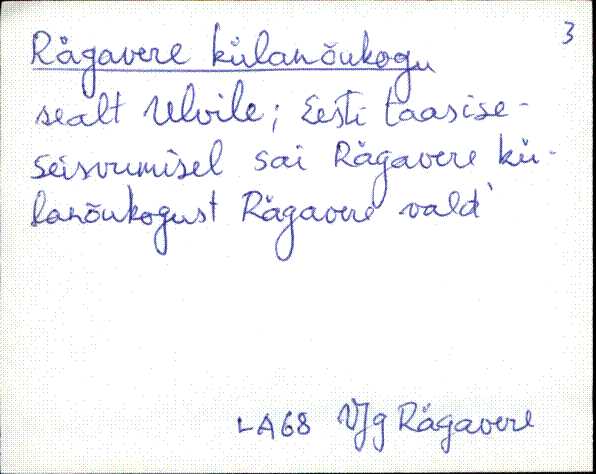 3
Rägavere külanõukogu
sealt Ulvile; Eesti taasise-
seisvumisel sai Rägavere kü-
lanõukogust Rägavere vald
LA68 VJg Rägavere